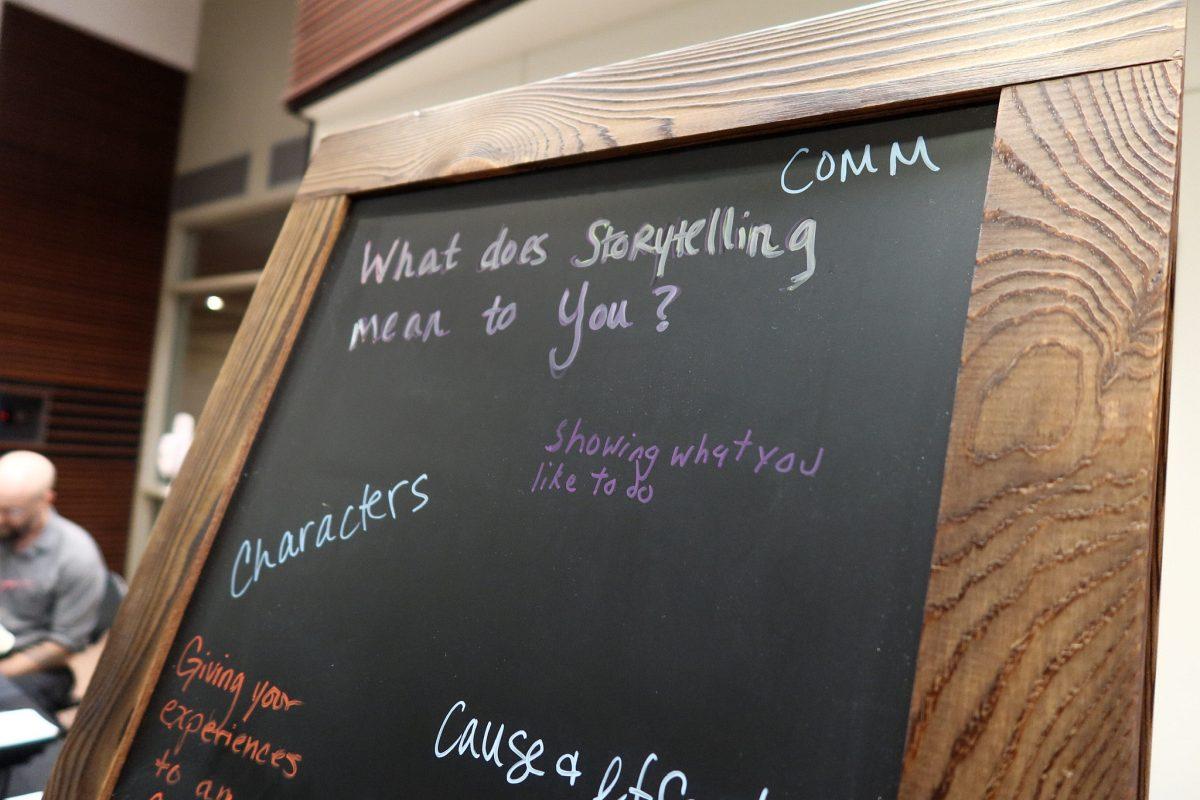 COMM
What does Storytelling
mean to You?
Showing what you
like to do
Characters
Giving your
experiences
to an
Cause &